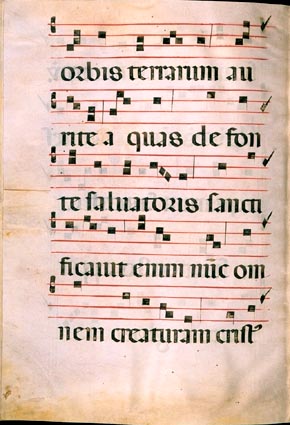 orbis terrarum au
rite a quas de fon
te saluatoris sancti
ficauit enim nūc om
nem creaturam crist⁹